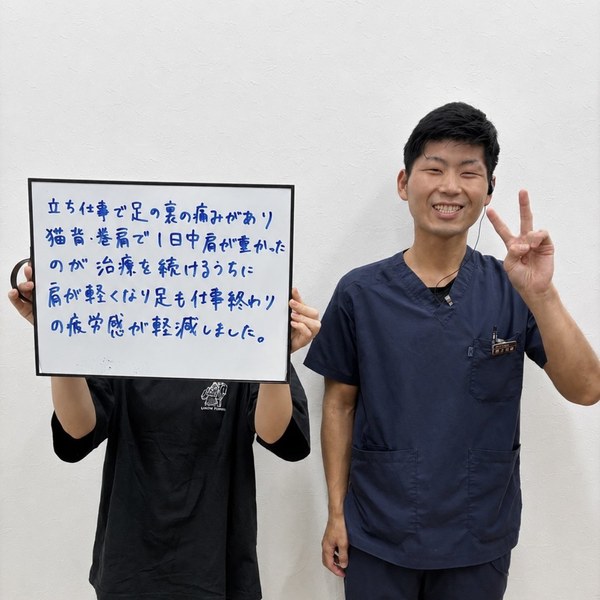 立ち仕事で足の裏の痛みがあり
猫背・巻肩で1日中肩が重かった
のが治療を続けるうちに
肩が軽くなり足も仕事終わり
の疲労感が軽減しました。